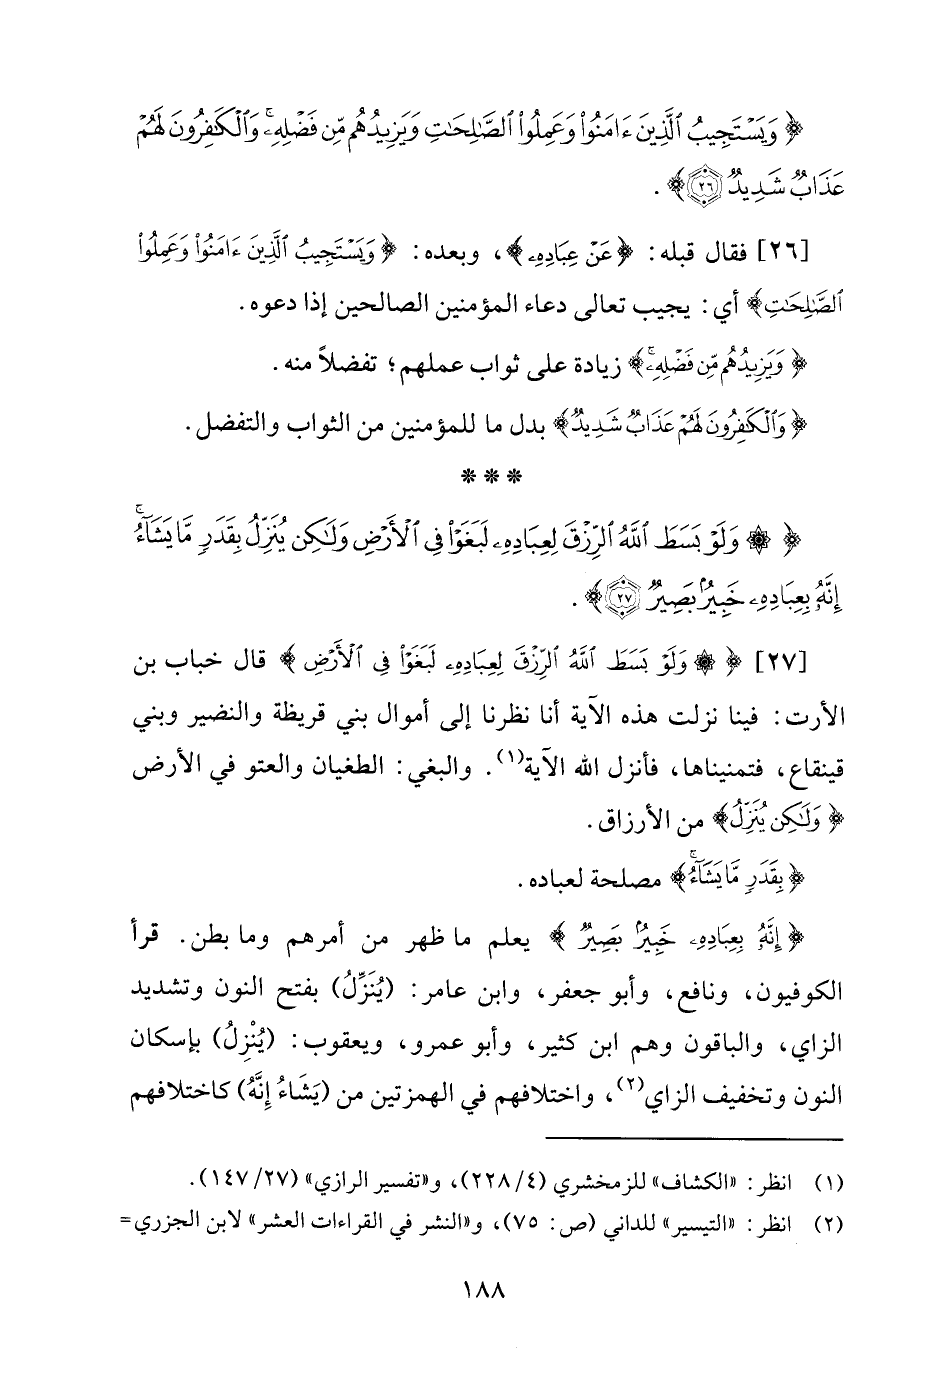 ﴿ وَيَسْتَجِيبُ ٱلَّذِينَ ءَامَنُوا۟ وَعَمِلُوا۟ ٱلصَّٰلِحَٰتِ وَيَزِيدُهُم مِّن فَضْلِهِۦ ۚ وَٱلْكَٰفِرُونَ لَهُمْ
عَذَابٌ شَدِيدٌ ٢٦﴾ .
[٢٦] فقال قبله: ﴿عَنْ عِبَادِهِۦ﴾، وبعده: ﴿وَيَسْتَجِيبُ ٱلَّذِينَ ءَامَنُوا۟ وَعَمِلُوا۟
ٱلصَّٰلِحَٰتِ﴾ أي: يجيب تعالى دعاء المؤمنين الصالحين إذا دعوه.
﴿ وَيَزِيدُهُم مِّن فَضْلِهِۦ ۚ﴾ زيادة على ثواب عملهم؛ تفضلاً منه.
﴿وَٱلْكَٰفِرُونَ لَهُمْ عَذَابٌ شَدِيدٌ﴾ بدل ما للمؤمنين من الثواب والتفضل.
* * *
﴿ ۞ وَلَوْ بَسَطَ ٱللَّهُ ٱلرِّزْقَ لِعِبَادِهِۦ لَبَغَوْا۟ فِى ٱلْأَرْضِ وَلَٰكِن يُنَزِّلُ بِقَدَرٍ مَّا يَشَآءُ ۚ
إِنَّهُۥ بِعِبَادِهِۦ خَبِيرٌۢ بَصِيرٌ ٢٧﴾ .
[٢٧] ﴿ ۞ وَلَوْ بَسَطَ ٱللَّهُ ٱلرِّزْقَ لِعِبَادِهِۦ لَبَغَوْا۟ فِى ٱلْأَرْضِ ﴾ قال خباب بن
الأرت: فينا نزلت هذه الآية أنا نظرنا إلى أموال بني قريظة والنضير وبني
قينقاع، فتمنيناها، فأنزل الله الآية(١). والبغي: الطغيان والعتو في الأرض
﴿ وَلَٰكِن يُنَزِّلُ﴾ من الأرزاق.
﴿بِقَدَرٍ مَّا يَشَآءُ ۚ﴾ مصلحة لعباده.
﴿إِنَّهُۥ بِعِبَادِهِۦ خَبِيرٌۢ بَصِيرٌ ﴾ يعلم ما ظهر من أمرهم وما بطن. قرأ
الكوفيون، ونافع، وأبو جعفر، وابن عامر: (يُنَزِّلُ) بفتح النون وتشديد
الزاي، والباقون وهم ابن كثير، وأبو عمرو، ويعقوب: (يُنْزِلُ) بإسكان
النون وتخفيف الزاي(٢)، واختلافهم في الهمزتين من (يَشَاءُ إِنَّهُ) كاختلافهم
(١) انظر: «الكشاف» للزمخشري (٤/ ٢٢٨)، و«تفسير الرازي» (٢٧/ ١٤٧).
(٢) انظر: «التيسير» للداني (ص: ٧٥)، و«النشر في القراءات العشر» لابن الجزري=
١٨٨